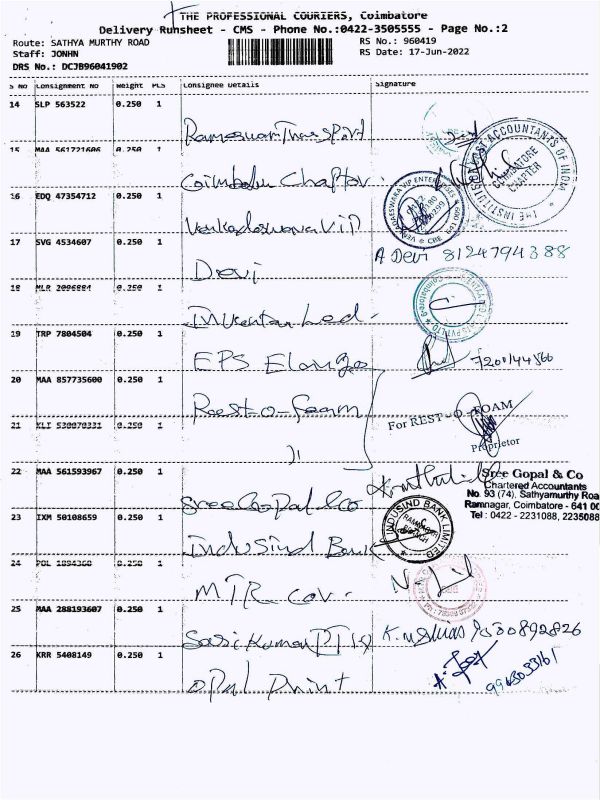 THE PROFESSIONAL COURIERS, Coimbatore
Delivery Runsheet - CMS - Phone No.:0422-3505555 - Page No.:2
Route: SATHYA MURTHY ROAD RS No.: 960419
Staff: JONHN RS Date: 17-Jun-2022
DRS No.: DCJB96041902
S No Consignment No Weight PCS Consignee Details Signature
14 SLP 563522 0.250 1
Rameswari Transport
15 MAA 561721606 0.250 1
THE INSTITUTE OF COST ACCOUNTANTS OF INDIA
COIMBATORE CHAPTER
Coimbatu Chapter.
16 EDQ 47354712 0.250 1
VENKADESWARA VIP ENTERPRISES
CBE
Venkadeswara V.I.P
17 SVG 4534607 0.250 1
A Devi 8124794388
Devi
18 MLR 0.250 1
19 TRP 7804504 0.250 1
EPS Elango
20 MAA 857735600 0.250 1
Reest-o-foam
For REST-O-FOAM
Proprietor
21 KLI 530070331 0.250 1
11
22 MAA 561593967 0.250 1
Sree Gopal & Co
Chartered Accountants
No. 93 (74), Sathyamurthy Roa
Ramnagar, Coimbatore - 641 00
Tel : 0422 - 2231088, 2235088
Sree Gopal & Co
23 IXM 50108659 0.250 1
INDUSIND BANK LIMITED
Indusind Bank
24 POL 1894360 0.250 1
MTR Cov.
25 MAA 288193607 0.250 1
Sasi Kumar
26 KRR 5408149 0.250 1
Opal Print